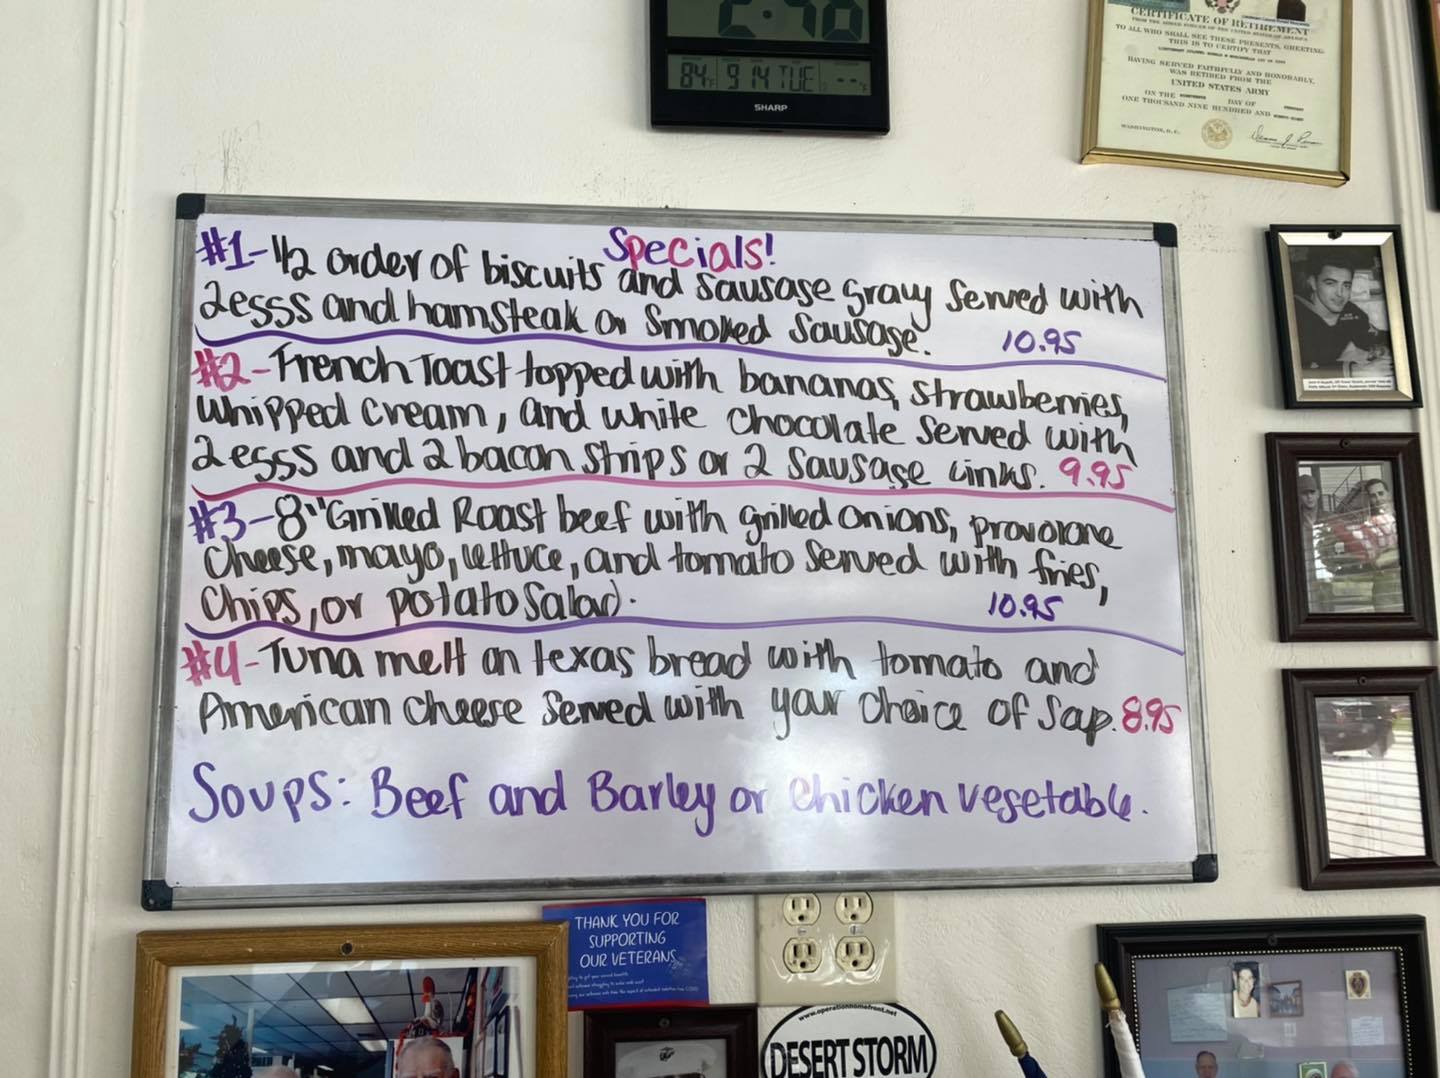 84°F 9 14 TUE --°F
SHARP
CERTIFICATE OF RETIREMENT
FROM THE ARMED FORCES OF THE UNITED STATES OF AMERICA
TO ALL WHO SHALL SEE THESE PRESENTS, GREETING:
THIS IS TO CERTIFY THAT
HAVING SERVED FAITHFULLY AND HONORABLY,
WAS RETIRED FROM THE
UNITED STATES ARMY
ON THE DAY OF
ONE THOUSAND NINE HUNDRED AND
WASHINGTON, D.C.
Specials!
#1- 1/2 order of biscuits and sausage gravy served with
2 eggs and hamsteak or smoked sausage. 10.95
#2- French Toast topped with bananas, strawberries,
whipped cream, and white chocolate served with
2 eggs and 2 bacon strips or 2 sausage links. 9.95
#3- 8" Grilled Roast beef with grilled onions, provolone
cheese, mayo, lettuce, and tomato served with fries,
chips, or potato salad. 10.95
#4- Tuna melt on texas bread with tomato and
American cheese served with your choice of soup. 8.95
Soups: Beef and Barley or chicken vegetable.
THANK YOU FOR
SUPPORTING
OUR VETERANS
www.operationhomefront.net
DESERT STORM